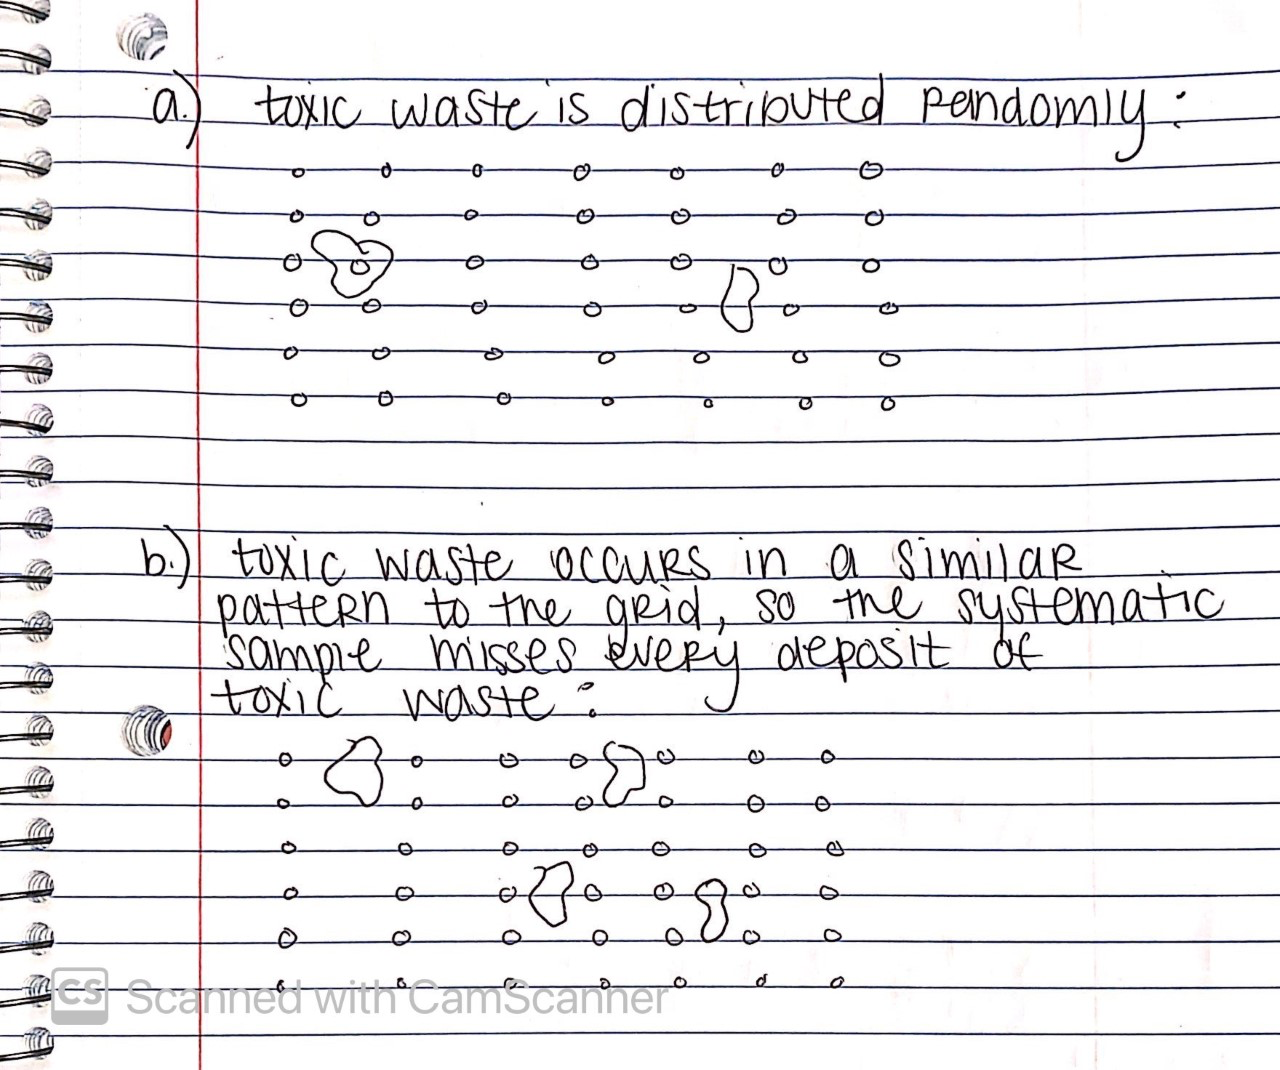 a.) toxic waste is distributed randomly:
b.) toxic waste occurs in a similar
pattern to the grid, so the systematic
sample misses every deposit of
toxic waste:
CS Scanned with CamScanner